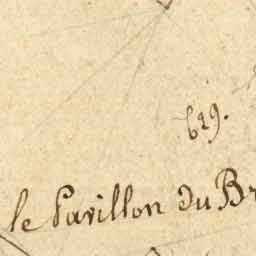 629.
le Pavillon du Br